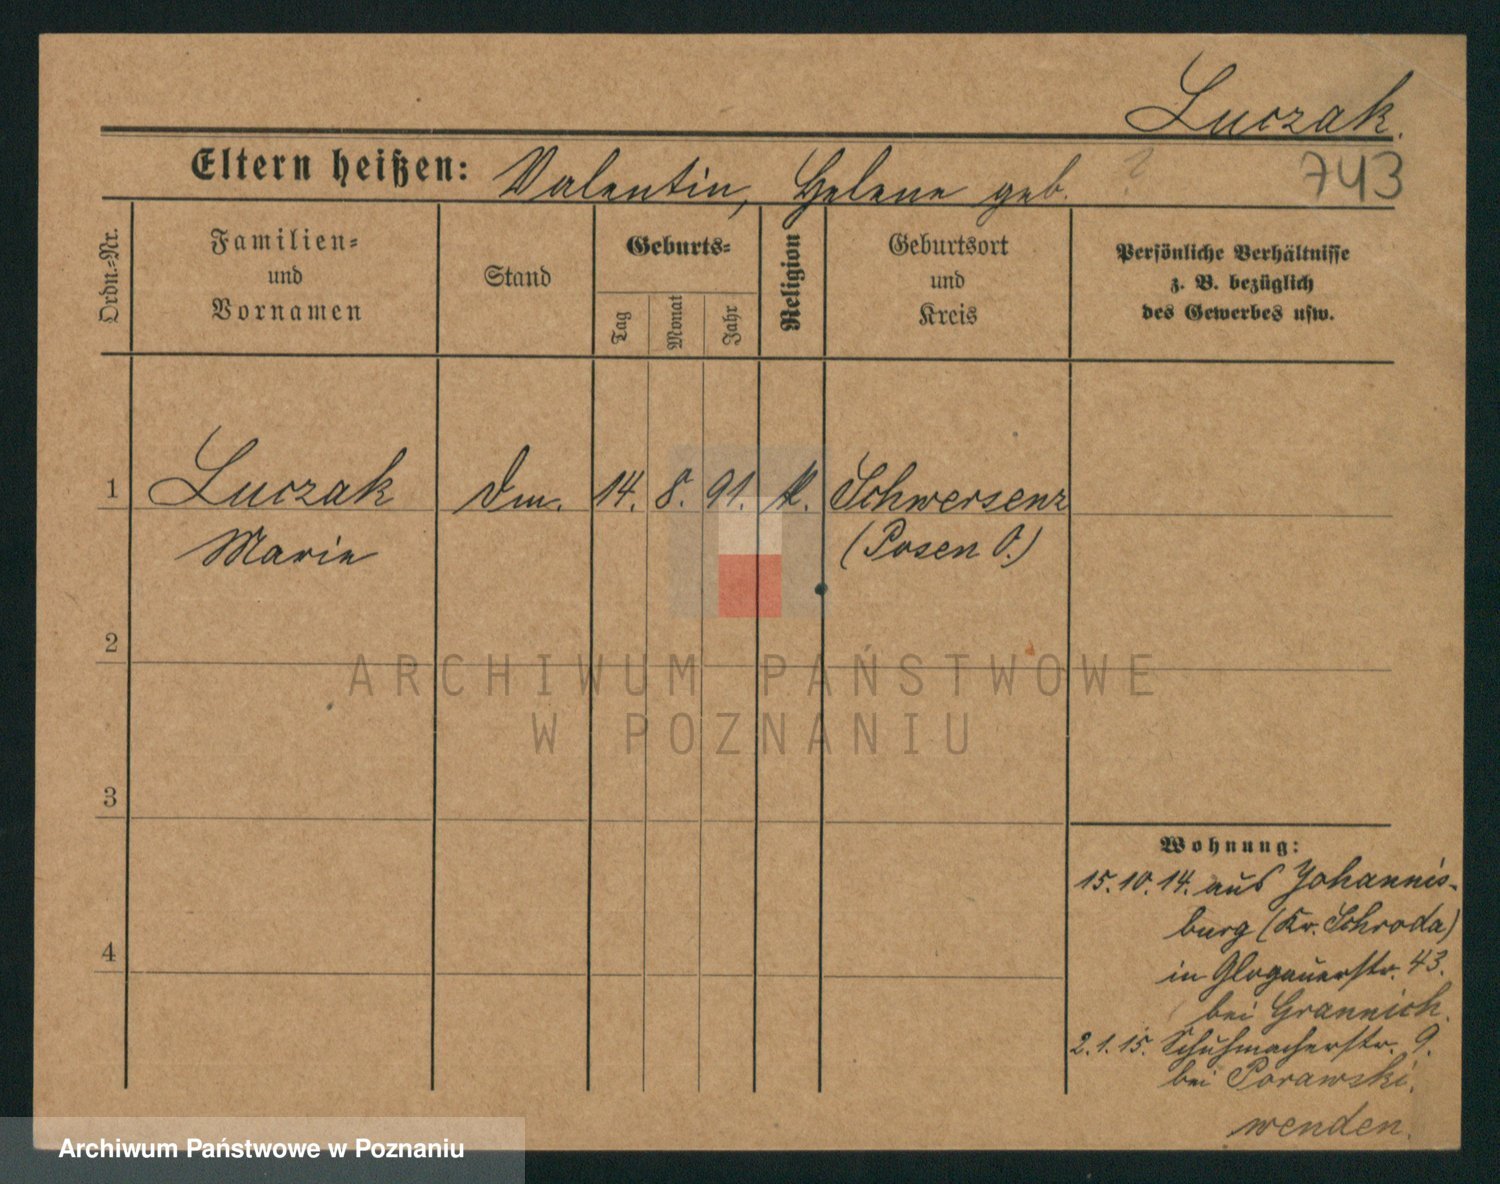 Luczak.
Eltern heißen: Valentin, Helene geb. ?
743
Ordn.-Nr.
Familien-
und
Vornamen
Stand
Geburts-
Tag
Monat
Jahr
Religion
Geburtsort
und
Kreis
Persönliche Verhältnisse
z. B. bezüglich
des Gewerbes usw.
1 Luczak Dm. 14. 8. 91. k. Schwersenz
Marie (Posen O.)
2
ARCHIWUM PAŃSTWOWE
W POZNANIU
3
Wohnung:
15. 10. 14. aus Johannis-
burg (Kr. Schroda)
4
in Glogauerstr. 43.
bei Grannich.
2. 1. 15. Schuhmacherstr. 9.
bei Porawski.
wenden.
Archiwum Państwowe w Poznaniu